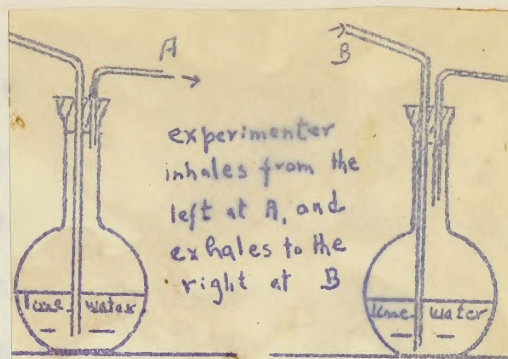 A
B
experimenter
inhales from the
left at A, and
exhales to the
right at B
lime water
lime water